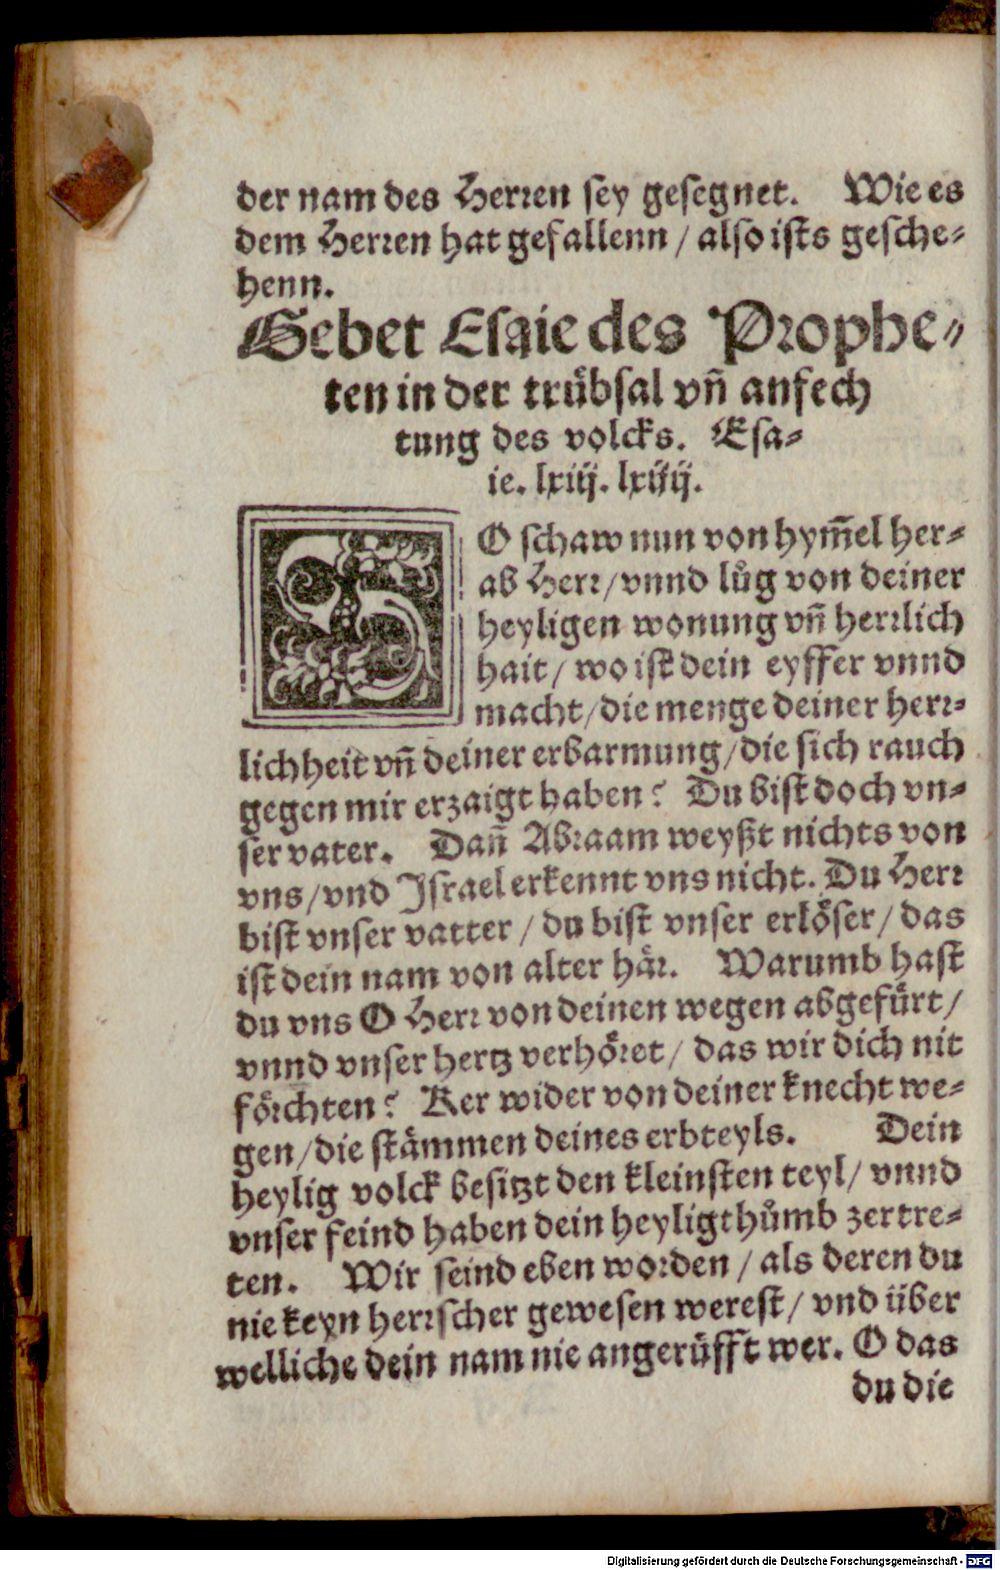 der nam des Herren sey gesegnet. Wie es
dem Herren hat gefallenn / also ists gesche⸗
henn.
Gebet Esaie des Prophe⸗
ten in der trübsal vñ anfech
tung des volcks. Esa⸗
ie. lxiij. lxiiij.
SO schaw nun von hym̃el her⸗
ab Herr / vnnd lůg von deiner
heyligen wonung vñ herrlich
hait / wo ist dein eyffer vnnd
macht / die menge deiner herr⸗
lichheit vñ deiner erbarmung / die sich rauch
gegen mir erzaigt haben? Du bist doch vn⸗
ser vater. Dañ Abraam weyßt nichts von
vns / vnd Israel erkennt vns nicht. Du Herr
bist vnser vatter / du bist vnser erlöser / das
ist dein nam von alter här. Warumb hast
du vns O Herr von deinen wegen abgefürt /
vnnd vnser hertz verhöret / das wir dich nit
förchten? Ker wider von deiner knecht we⸗
gen / die stämmen deines erbteyls. Dein
heylig volck besitzt den kleinsten teyl / vnnd
vnser feind haben dein heyligthůmb zertre⸗
ten. Wir seind eben worden / als deren du
nie keyn herrscher gewesen werest / vnd über
welliche dein nam nie angerüfft wer. O das
du die
Digitalisierung gefördert durch die Deutsche Forschungsgemeinschaft - DFG